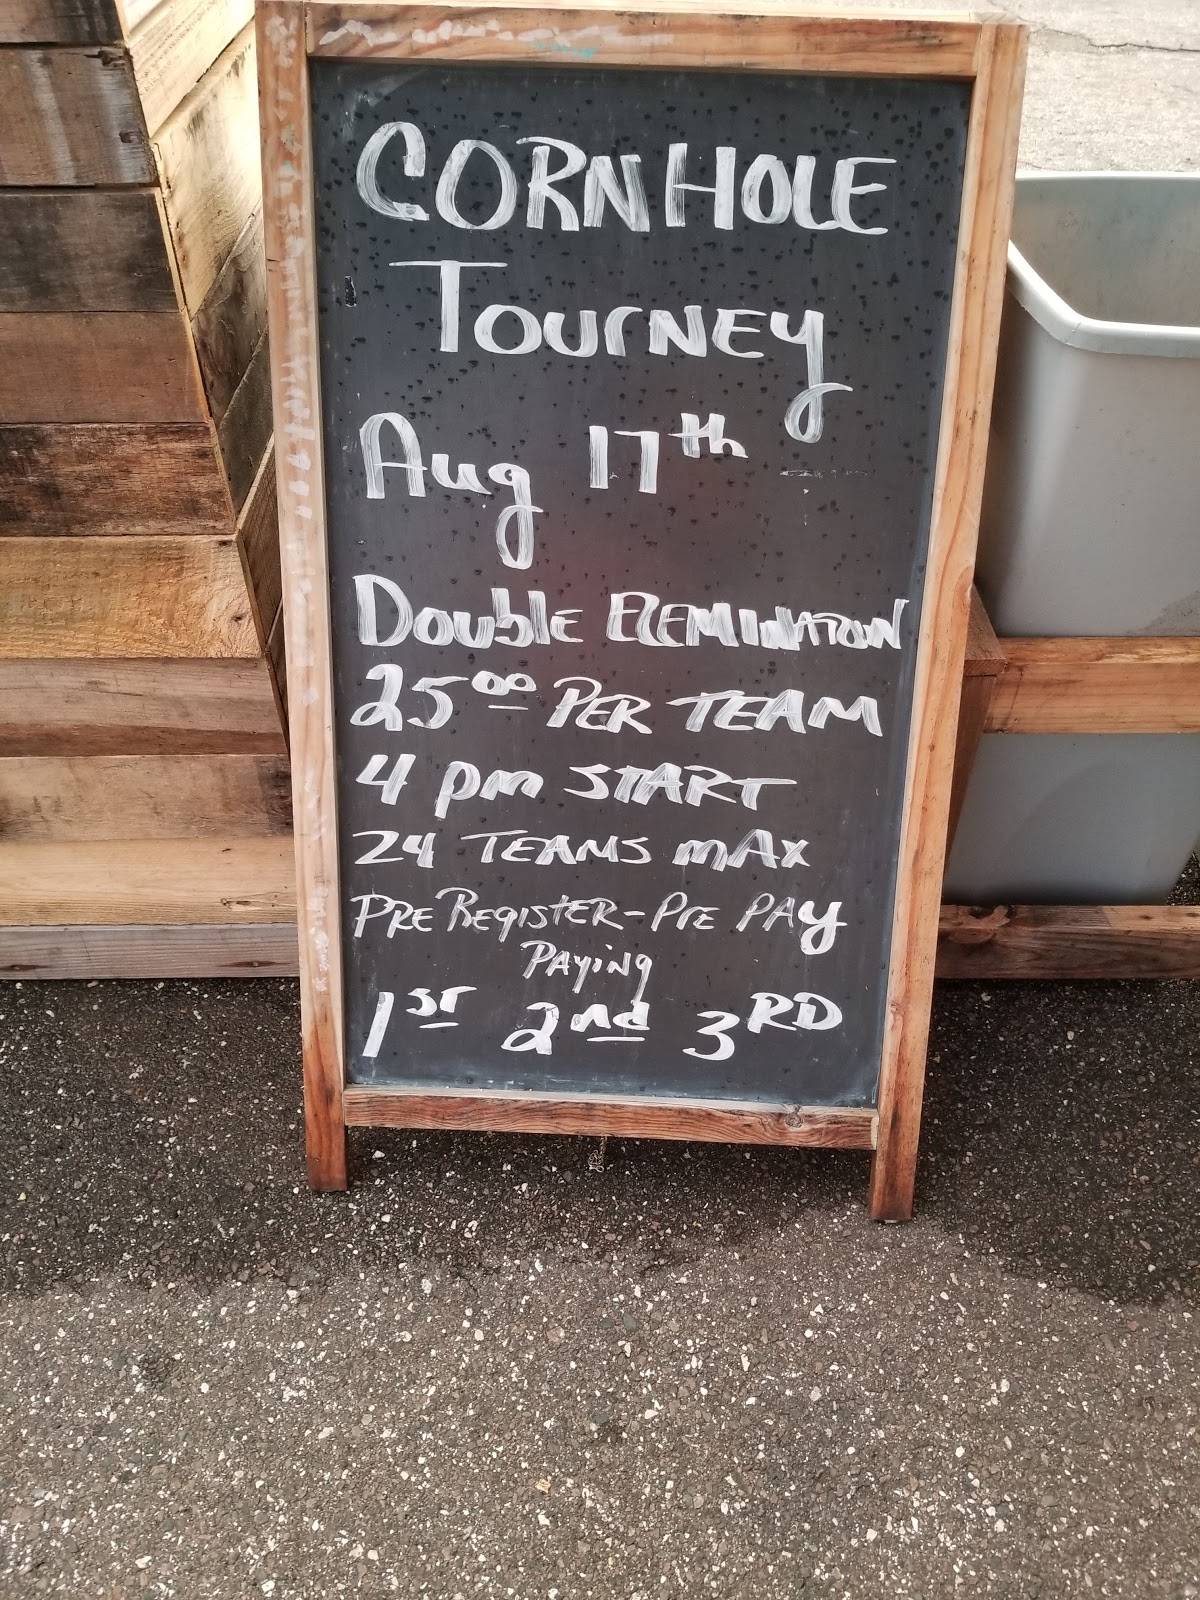 CORNHOLE
TOURNEY
Aug 17th
Double ELEMINATION
25.00 PER TEAM
4 pm START
24 TEAMS MAX
PRE REGISTER - Pre PAy
PAying
1st 2nd 3RD